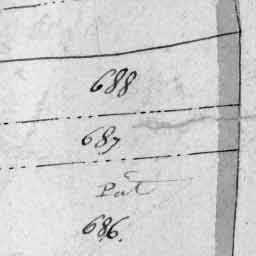 688
687
Pat
686.